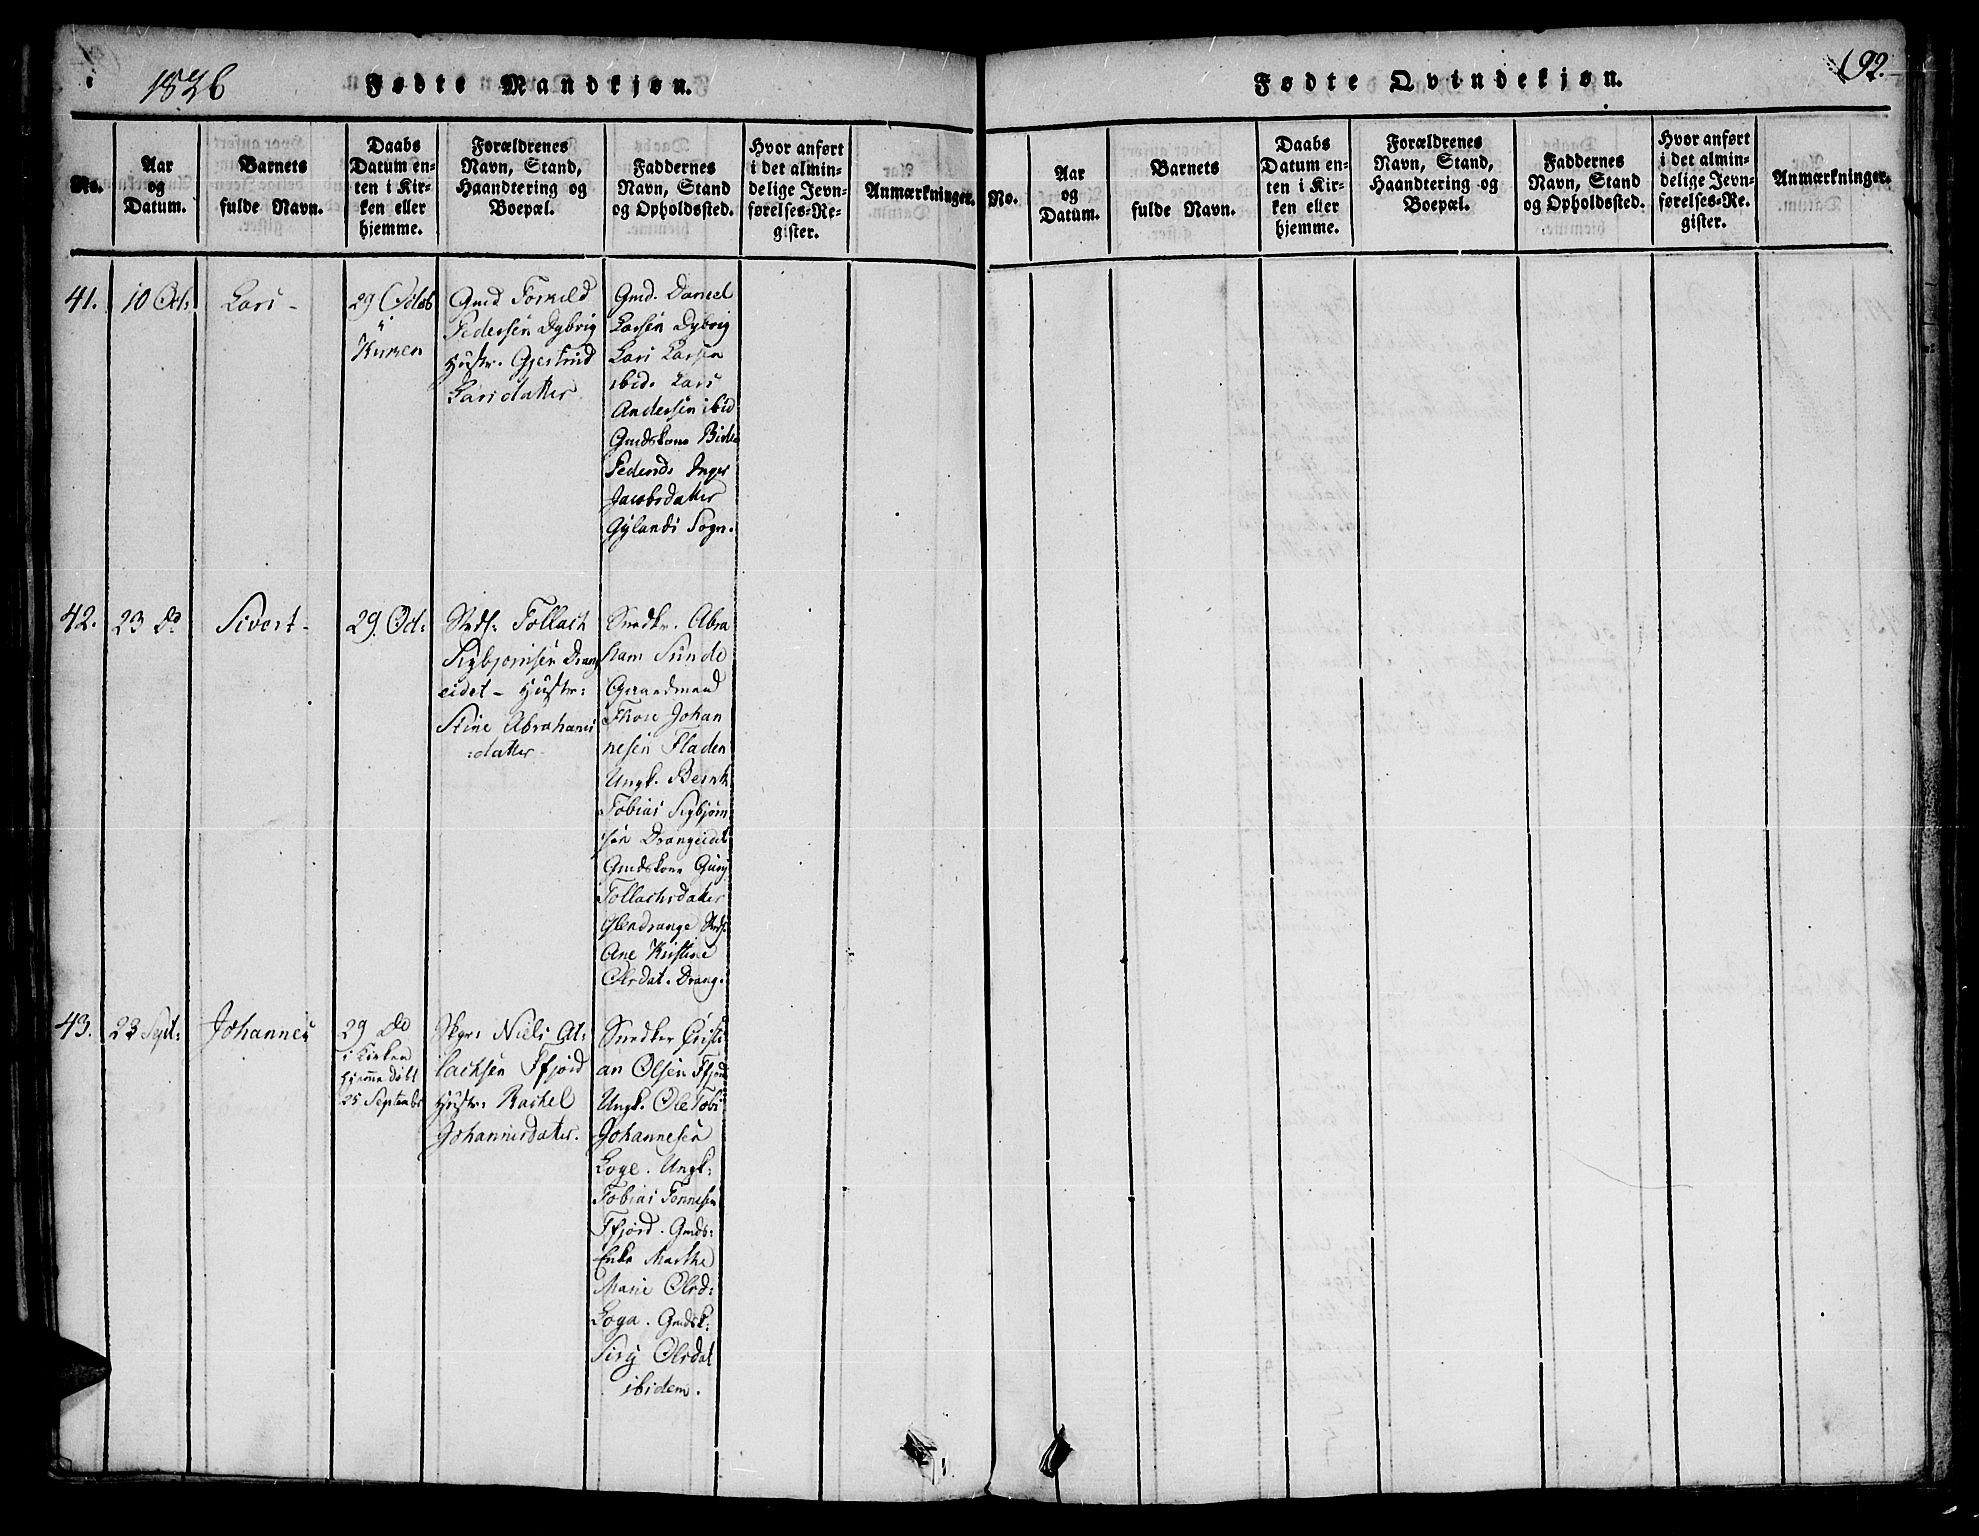 1826
Fødte Mandkjøn.
No.
Aar
og
Datum.
Barnets
fulde Navn.
Daabs
Datum en-
ten i Kir-
ken eller
hjemme.
Forældrenes
Navn, Stand,
Haandtering og
Boepæl.
Faddernes
Navn, Stand
og Opholdssted.
Hvor anført
i det almin-
delige Jevn-
førelses-Re-
gister.
Anmærkninger.
41.
10 Oct:
Lars -
29 Octob
i
Kirken
Gmd Tormild
Pedersen Dybvig
Hustr. Gjertrud
Larsdatter
Gmd. Daniel
Larsen Dybvig
Lars Larsen
ibid. Lars
Andersen ibid
Gmdskone
Pedersd. Inger
Jacobsdatter
Gylands Sogn.
42.
23 do
Sivert -
29. Oct:
Tollach
Sigbjørnsen Drang
eidet - Hustr:
Stine Abrahams
:datter
Snedkr. Abra
ham Sunde
Gaardmand
Thore Johan
nesen Fladen
Ungk. Bernt
Tobias Sigbjørn
sen Drangeidet
Gmdskone Guri
Tollachsdatter
Øvendrange
Ane Kristine
Olsdat. Drang.
43.
23 Sept:
Johannes
29 do
i Kirken
hjemme døbt
25 Septembr
Niels At:
lachsen Ffjord
Hustr: Rachel
Johannesdatter.
Snedker Cristi
an Olsen Ffjord
Ungk. Ole Tobi
Johannesen
Loge. Ungk:
Tobias Tønnesen
Ffjord. Gmds:
Enke Marthe
Marie Olsd:
Loga. Gmdsk:
Siri Olsdat
ibidem.
Fødte Qvindekjøn.
192.
No.
Aar
og
Datum.
Barnets
fulde Navn.
Daabs
Datum en-
ten i Kir-
ken eller
hjemme.
Forældrenes
Navn, Stand,
Haandtering og
Boepæl.
Faddernes
Navn, Stand
og Opholdssted.
Hvor anført
i det almin-
delige Jevn-
førelses-Re-
gister.
Anmærkninger.